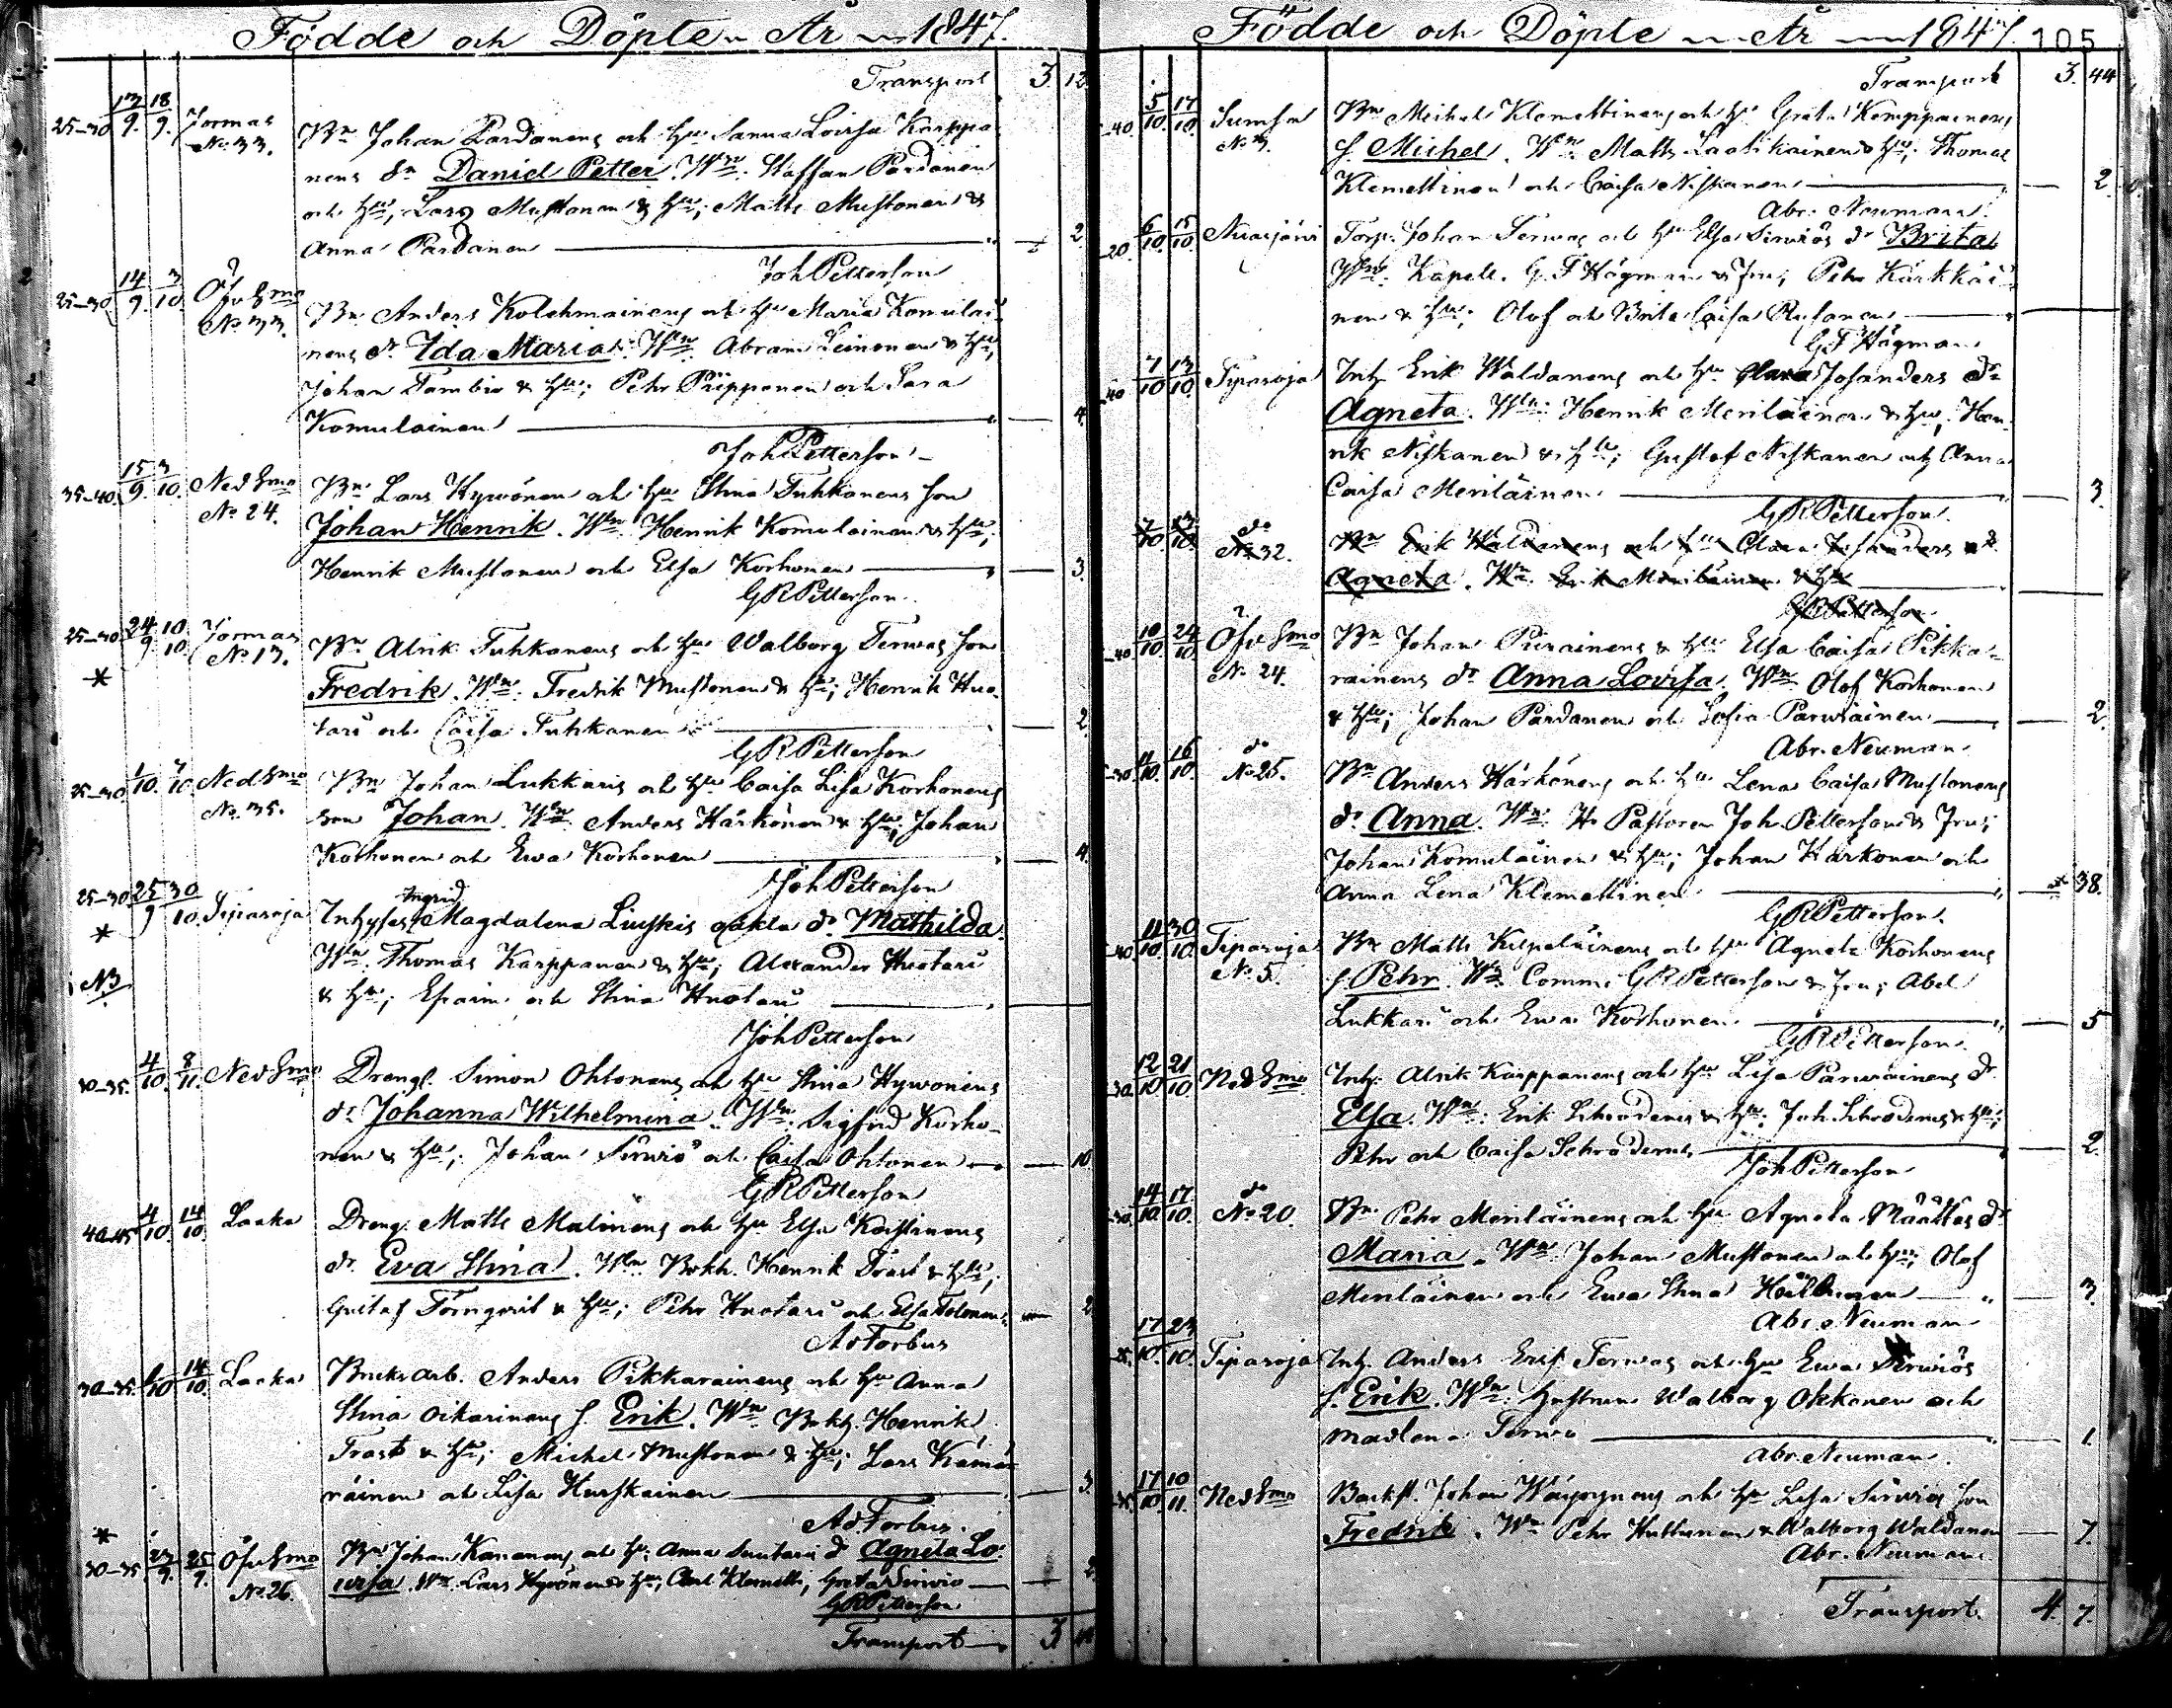 Födde och Döpte År 1847.
Transport 3 12
25-30 13/9. 18/9. Jormas No 33. Bn Johan Pardanens och hu Sanna Lovisa Karppa-
nens dr Daniel Petter. Wn. Staffan Pardanen
och hu; Lars Mustonen & hu; Matts Mustonen &
Anna Pardanen 2
Joh Petterson
25-30. 14/9. 3/10. Öfv Smo No 33. Bn Anders Kolehmainens och hu Maria Komulai-
nens dr Ida Maria. Wn. Abram Leinonen & hu,
Johan Tambio & hu; Pehr Piipponen och Sara
Komulainen 4.
Joh Petterson
35-40. 15/9. 3/10. Ned Smo No 24. Bn Lars Hywönen och hu Stina Tuhkanens son
Johan Henrik. Wn. Henrik Komulainen & hu;
Henrik Mustonen och Elsa Korhonen 3.
G R Petterson.
25-30. 24/9 10/10. Jormas No 13. Bn Alrik Tuhkanens och hu Walborg Terwas son
* Fredrik. Wn. Fredrik Mustonen & hu; Henrik Huo-
tari och Caisa Tuhkanen 2
G R Petterson
25-30. 1/10. 7/10. Ned Smo No. 35. Bn Johan Lukkaris och hu Caisa Lisa Korhonens
son Johan. Wn. Anders Härkönen & hu; Johan
Korhonen och Ewa Korhonen 4.
Joh Petterson
25-30. 25/9 30/10. Tipasoja Inhyses Ingrid Magdalena Liuskis oäkta dr Mathilda.
* Wn. Thomas Karppanen & hu; Alexander Huotari
NB & hu; Efraim och Stina Huotari
Joh Petterson
30-35. 4/10. 8/11. Ned Smo Drengl. Simon Ohtonens och hu Stina Hywönens
dr Johanna Wilhelmina. Wn. Sigfrid Korho-
nen & hu; Johan Sirwiö och Caisa Ohtonen 10
G R Petterson
40-45 4/10. 14/10. Laaka Dreng. Matts Malinens och hu Elsa
dr. Eva Stina. Wn. Bokh. Henrik Trast & hu;
Gustaf Törnqvist & hu; Pehr Huotari och Elsa 2
Ad Forbus
30-35. 6/10 14/10. Laaka Bruksarb. Anders Pikkarainens och hu Anna
Stina Oikarinens s. Erik. Wn. Bokh. Henrik
Trast & hu; Michel Mustonen & hu; Lars Kämä-
räinen och Lisa Hurskainen 3.
Ad Forbus.
* 30-35. 23/9. 25/9. Öfv Smo No. 26. Bn Johan Kananens och hu Anna dr Agneta Lo-
wisa. Wn. Lars Hywönen & hu; Klemetti, Greta Sirwio 2
G R Petterson
Transport 3
Födde och Döpte År 1847. 105
Transport 3. 44
-40. 5/10. 17/10. Sumsa No 3. Bn Michel Klemettinens och hu Greta Kemppainens
s. Michel. Wn. Matts Laatikainen & hu; Thomas
Klemettinen och Caisa Niskanen 2
Abr. Neuman.
-20 6/10. 15/10. Nuasjärvi Torp. Johan Terwas och hu Elsa Sirwiös dr Brita
Wn. Kapell. G. F Högman & Fru, Pehr Kärkkäi-
nen & hu; Olof och Brita Caisa
G F Högman
-40 7/10 13/10. Tipasoja Inh. Erik Waldanens och hu Clara Josanders dr
Agneta. Wn. Henrik Meriläinen & hu, Hen-
rik Niskanen & hu; Gustof Niskanen och Anna
Caisa Meriläinen 3.
G R Petterson.
7/10 13/10. do No 32. Bn Erik Waldanens och hu Clara Josanders dr
Agneta. Wn. Erik Meriläinen & hu
G R Petterson
-40 10/10 24/10. Öfv Smo No 24. Bn Johan Piirainens & hu Elsa Caisa Pikka-
rainens dr Anna Lovisa. Wn Olof Korhonen
& hu; Johan Pardanen och Sofia Parwiainen 2.
Abr. Neuman
-30 11/10. 16/10. do No 25. Bn Anders Härkönens och hu Lena Caisa Mustonens
dr Anna. Wn. Hr Pastoren Joh. Petterson & Fru;
Johan Komulainen & hu; Johan Härkonen och
Anna Lena Klemettinen 38.
G R Petterson.
-40 11/10 30/10. Tipasoja No. 5. Bn Matts Kilpeläinens och hu Agneta Korhonens
s. Pehr. Wn. Comm: G R Petterson & Fru; Abel
Lukkari och Ewa Korhonen 5
G R Petterson.
-30 12/10 21/10 Ned Smo Inh. Alrik Karppanens och hu Lisa Parwiainens dr
Elsa. Wn. Erik Schroderus & hu; Joh. Schroderus & hu;
Pehr och Caisa Schroderus 2.
Joh Petterson
-30 14/10 17/10. do No 20. Bn Pehr Meriläinens och hu Agneta Määttäs dr
Maria. Wn. Johan Mustonen och hu; Olof
Meriläinen och Ewa Stina 3.
Abr. Neuman
17/10. 23/10. Tipasoja Inh. Anders Erik Terwas och hu Ewa Sirwiös
s. Erik. Wn. hustrun Walborg Okkonen och
Madlena Terwa 1.
Abr. Neuman.
17/10 10/11. Ned Smo Backst. Johan Wäyrynens och hu Lisa Sirwiös son
Fredrik. Wn Pehr Huttunen & Walborg Waldanen 7.
Abr. Neuman.
Transport. 4. 7.